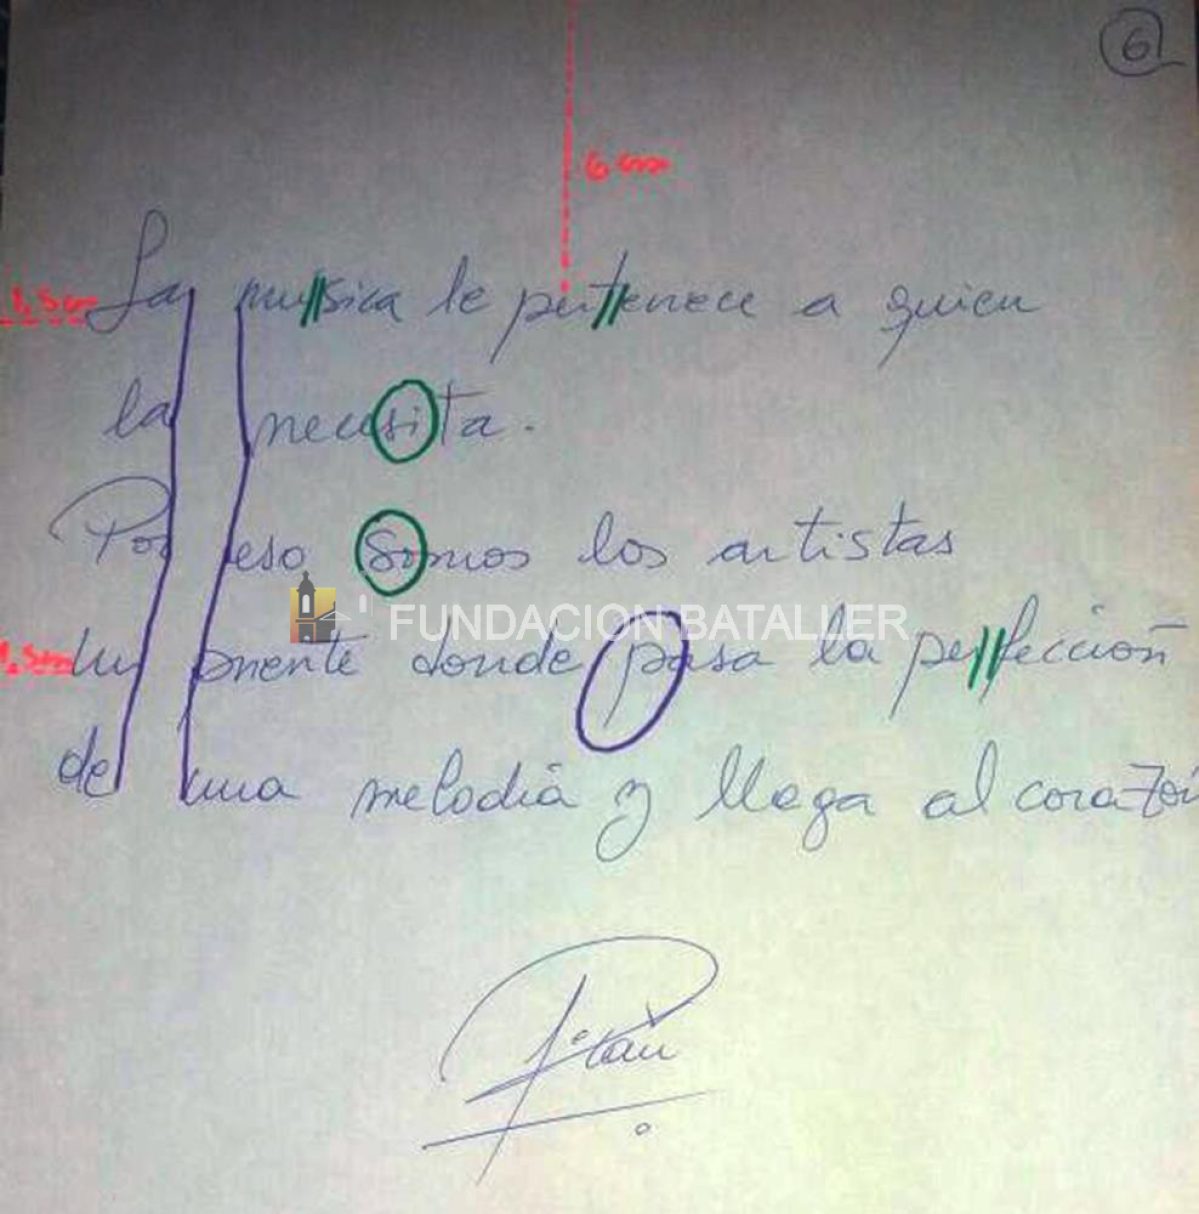 6
6 cm
1,5 cm La musica le pertenece a quien
la necesita.
Por eso somos los artistas
FUNDACION BATALLER
1,5 cm un puente donde pasa la perfección
de una melodía y llega al corazón
Pitau